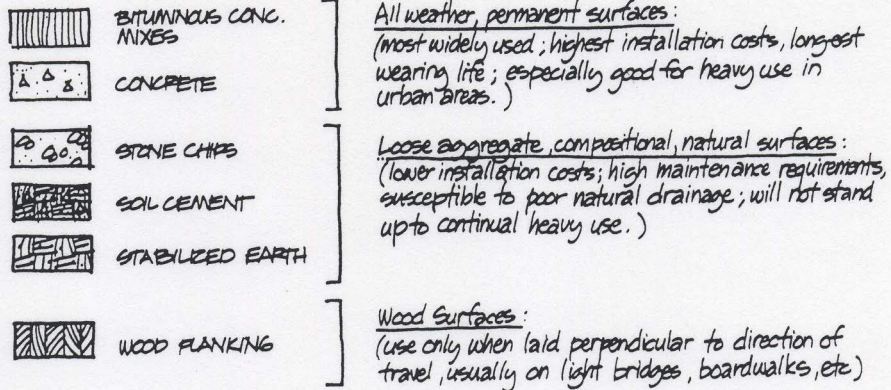 BITUMINOUS CONC.
MIXES
CONCRETE
All weather, permanent surfaces:
(most widely used; highest installation costs, longest
wearing life; especially good for heavy use in
urban areas.)
STONE CHIPS
SOIL CEMENT
STABILIZED EARTH
Loose aggregate, compositional, natural surfaces:
(lower installation costs; high maintenance requirements,
susceptible to poor natural drainage; will not stand
up to continual heavy use.)
WOOD PLANKING
Wood Surfaces:
(use only when laid perpendicular to direction of
travel, usually on light bridges, boardwalks, etc)